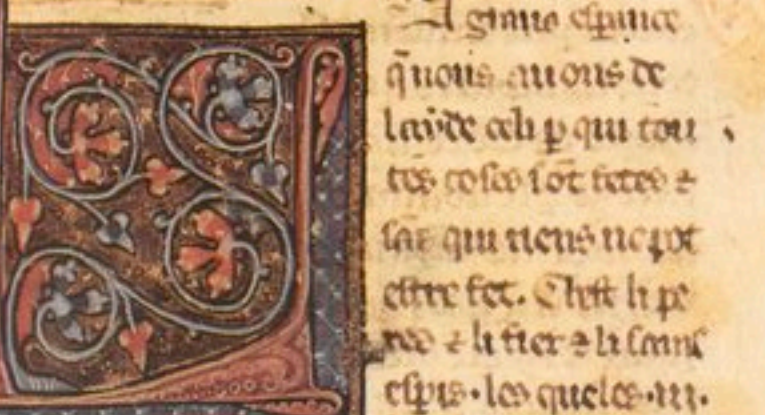 A grant esperance
q̄ nous auons de
layde celi ꝑ qui tou
tes coses sōt fetes ⁊
sās qui riens ne pot
estre fet. Chest li pe
res ⁊ li fiex ⁊ li sains
espis · les queles .iii.